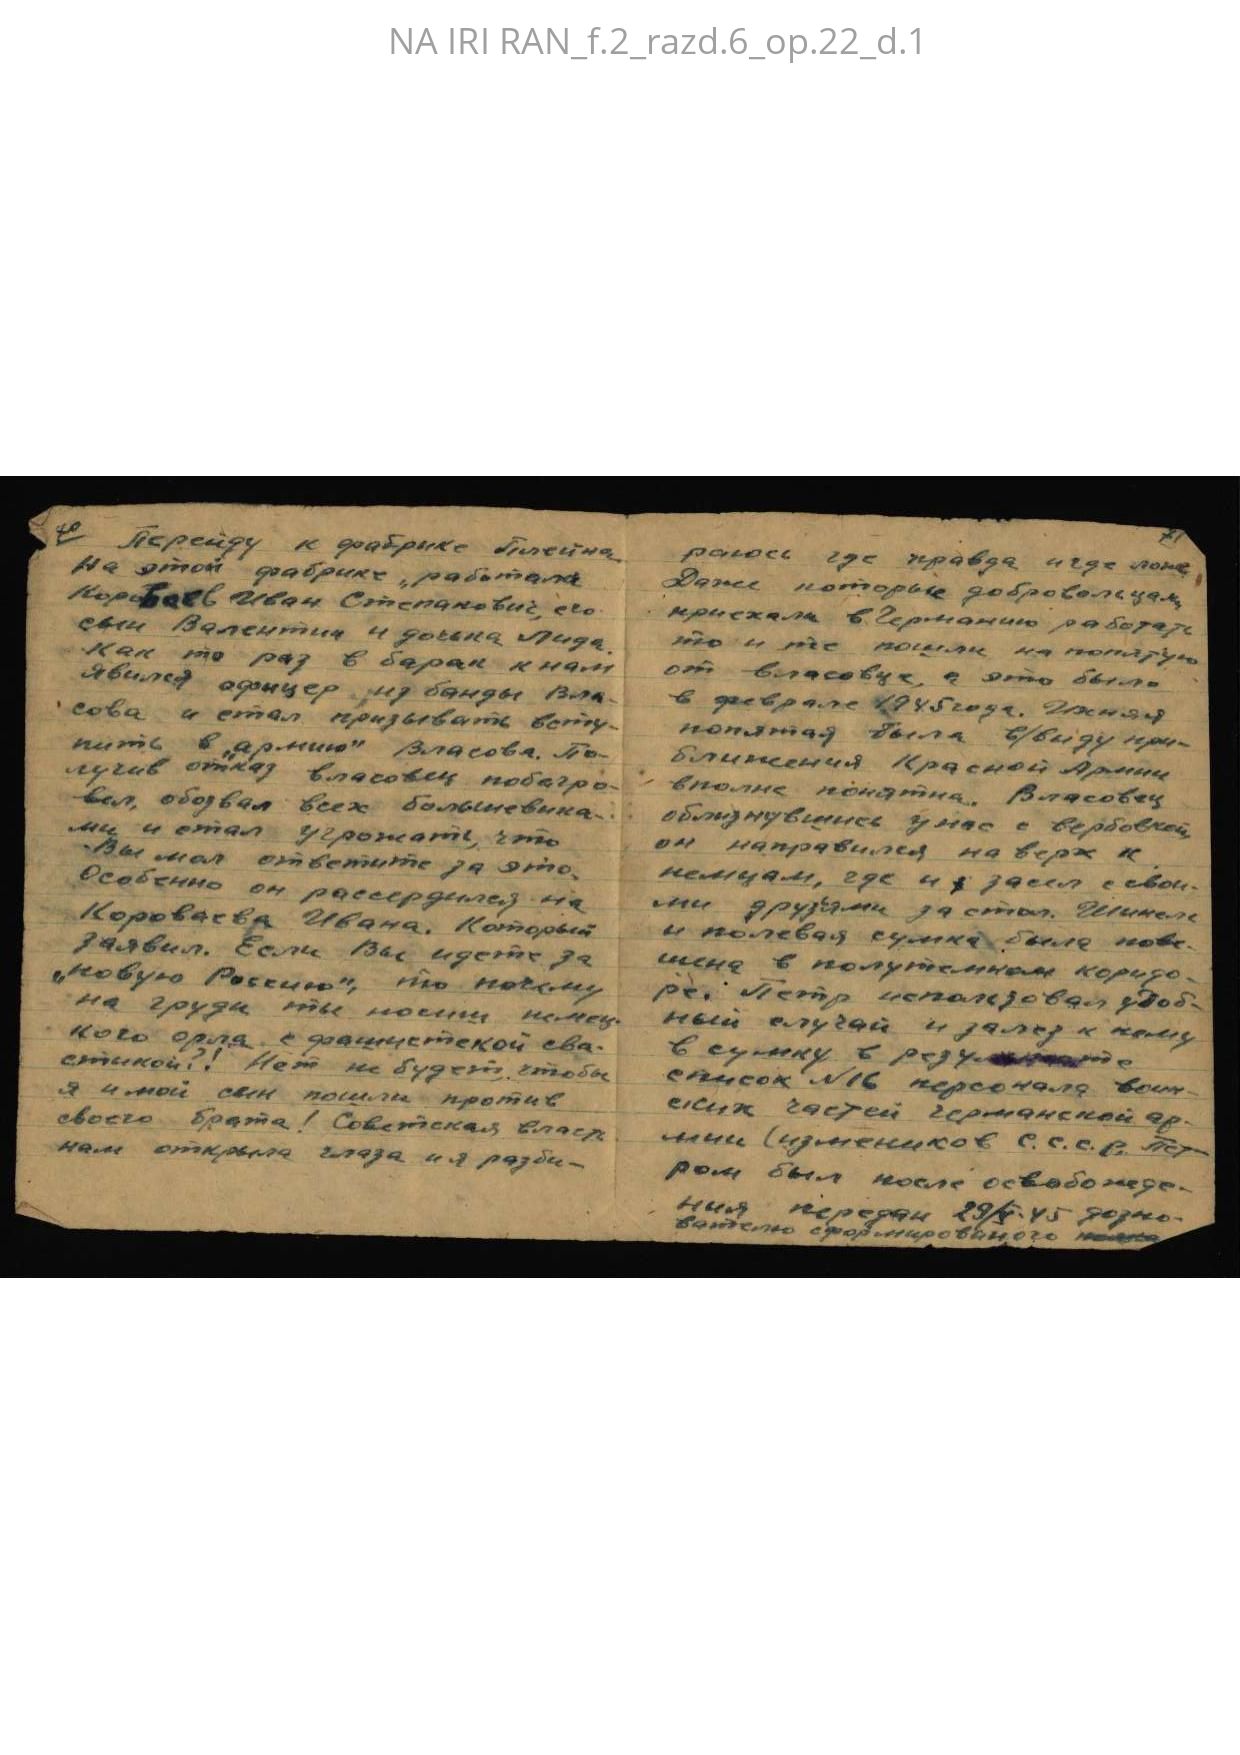 NA IRI RAN_f.2_razd.6_op.22_d.1
Перейду к фабрике Плейна
На этой фабрике „работали
Короваев Иван Степанович, его
сын Валентин и дочька Лида.
Как то раз в барак к нам
явился офицер из банды Вла-
сова и стал призывать всту-
пить в „армию" Власова. По-
лучив отказ власовец побагро-
вел, обозвал всех большевика-
ми и стал угрожать, что
Вы мол ответите за это.
Особенно он рассердился на
Короваева Ивана. Который
заявил. Если Вы идете за
„новую Россию", то почему
на груди ты носиш немец-
кого орла с фашистской сва-
стикой?! Нет не будет, чтобы
я и мой сын пошли против
своего брата! Советская власть
нам открыла глаза и я разби-
раюсь где правда и где ложь
Даже которые добровольцами
приехали в Германию работать
то и те пошли на попятую
от власовца, а это было
в феврале 1945 года. Ихняя
попятая была в/виду при-
ближения Красной Армии
вполне понятна. Власовец
облизнувшись у нас с вербовкой,
он направился на верх к
немцам, где и засел с свои-
ми друзями за стол. Шинель
и полевая сумка была пове-
шена в полутемном коридо-
ре. Петр использовал удоб-
ный случай и залез к нему
в сумку в результате
список №16 персонала воин-
ских частей германской ар-
мии (изменников С.С.С.Р. Пет-
ром был после освобожде-
ния передан 29/V-45 дозно-
вателю сформированого